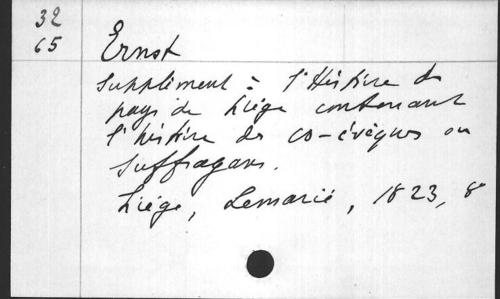 32
65
Ernst
Supplément à l'Histoire du
pays de Liége contenant
l'histoire des co-évêques ou
suffragans.
Liége, Lemarié, 1823, 8°